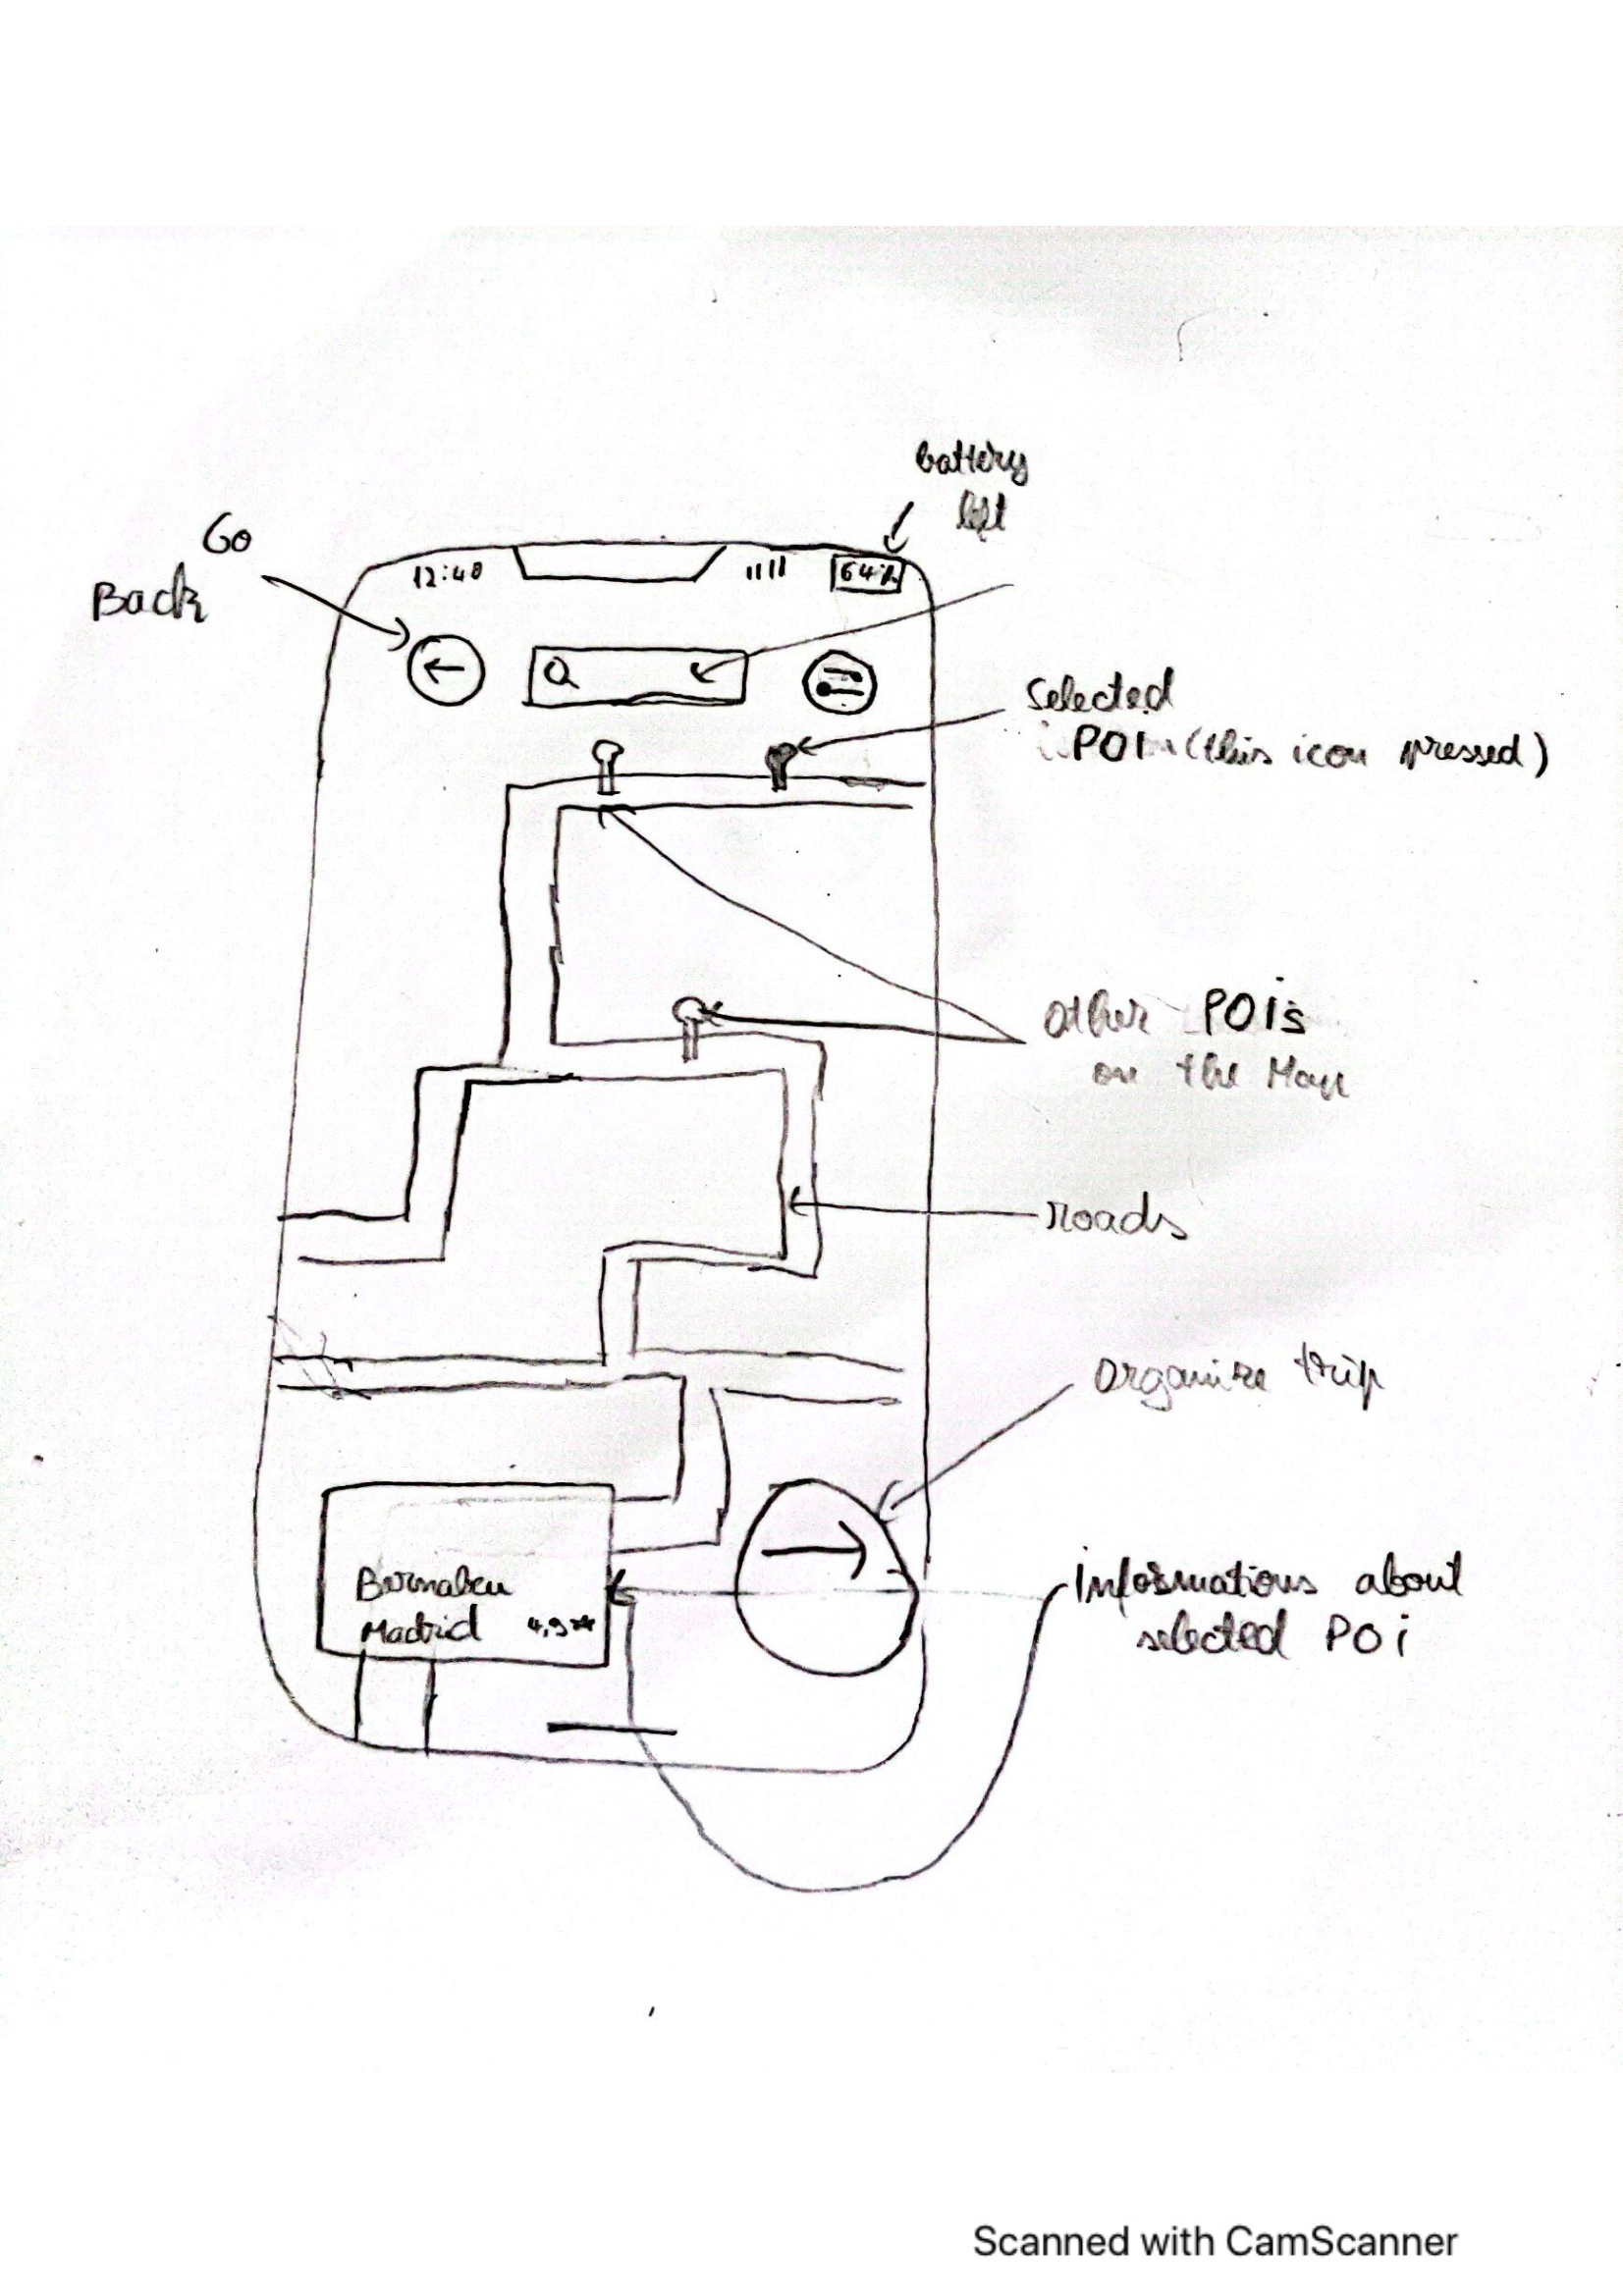 battery
left
Go
Back
12:40
64%
Selected
POI (this icon pressed)
Other POIs
on the Map
roads
Organize trip
Bernabeu
Madrid 4,9**
Informations about
selected POi
Scanned with CamScanner